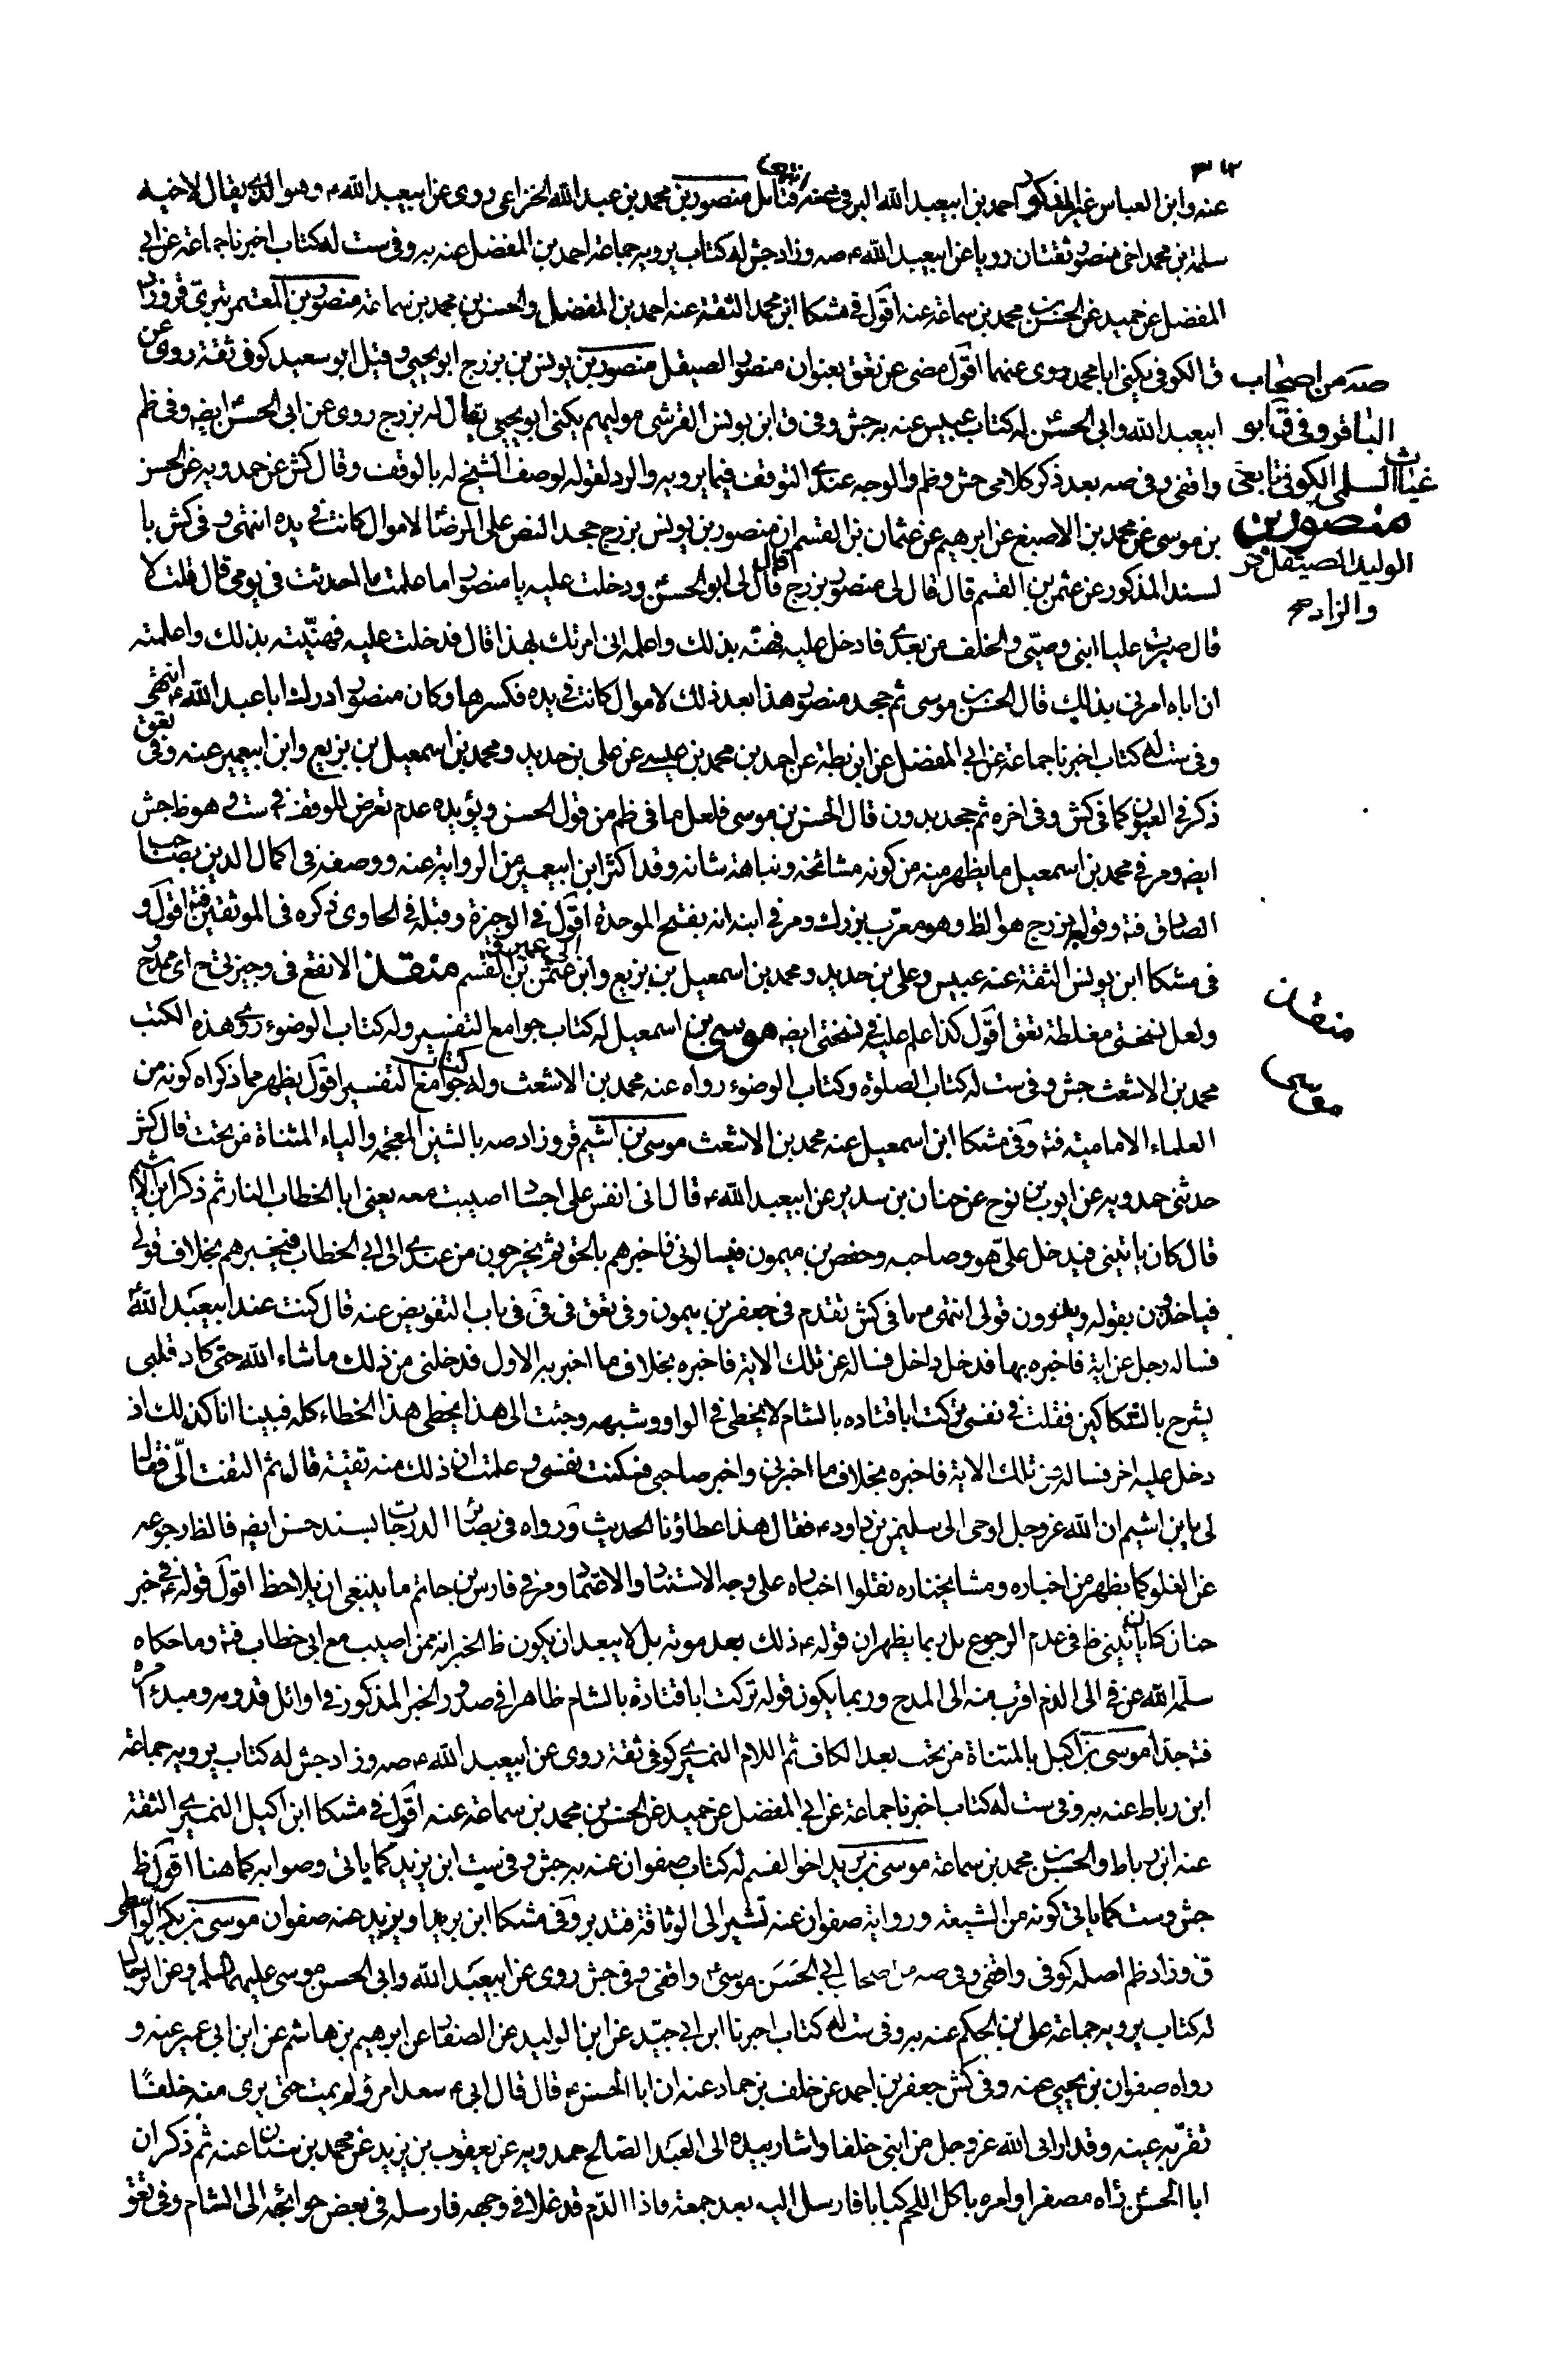 ٣١٢
عنه وابن العباس غير المذكور احمد بن ابيعبد الله البرقي عنه انتهى فتامل منصور بن محمد بن عبد الله الخزاعي روى عن ابيعبد الله ع وهو الذي يقال لاخيه
سلمة بن محمد اخي منصور ثقتان رويا عن ابيعبد الله ع صه وزاد جش له كتاب يرويه جماعة احمد بن المفضل عنه به وفي ست له كتاب اخبرنا جماعة عن ابي
المفضل عن حميد عن الحسن بن محمد بن سماعة عنه اقول في مشكا ابن محمد الثقة عنه احمد بن المفضل والحسن بن محمد بن سماعة منصور بن المعتمر بتري قر وزاد
ق الكوفي يكنى ابا محمد روى عنهما اقول مضى عن تعق بعنوان منصور الصيقل منصور بن يونس بن بزرج ابو يحيى وقيل ابو سعيد كوفي ثقة روى عن
ابيعبد الله وابي الحسن له كتاب عبيس عنه به جش وفي ق ابن يونس القرشي موليهم يكنى ابو يحيى يقال له بزرج روى عن ابي الحسن ايضه وفي ظم
واقفي وفي صه بعد ذكر كلامي جش وظم والوجه عندي التوقف فيما يرويه والرد لقوله لوصف الشيخ له بالوقف وقال كش عن حمدويه عن الحسن
بن موسى عن محمد بن الاصبغ عن ابرهيم عن عثمان بن القسم ان منصور بن يونس بزرج جحد النص على الرضا لاموال كانت في يده انتهى وفي كش با
لسند المذكور عن عثمن بن القسم قال قال لي منصور بزرج قال لي ابو الحسن ودخلت عليه يا منصور اما علمت ما احدثت في يومي قال قلت لا
قال صيرت عليا ابني وصيي والخلف من بعدي فادخل عليه فهنه بذلك واعلمه اني امرتك بهذا قال فدخلت عليه فهنيته بذلك واعلمته
ان اباه امرني بذلك قال الحسن بن موسى ثم جحد منصور هذا بعد ذلك لاموال كانت في يده فكسرها وكان منصور ادرك ابا عبد الله ع انتهى
وفي ست له كتاب اخبرنا جماعة عن ابي المفضل عن ابن بطة عن احمد بن محمد بن عيسى عن علي بن حديد ومحمد بن اسمعيل بن بزيع وابن ابيعمير عنه وفي تعق
ذكر في العيون كما في كش وفي اخره ثم جحد بدون قال الحسن بن موسى فلعل ما في ظم من قول الحسن ويؤيده عدم تعرض للوقف في ست هو ظ جش
ايضه ومر في محمد بن اسمعيل ما يظهر منه من كونه مشائخه ونباهة شانه وقد اكثر ابن ابيعمير من الرواية عنه ووصفه في اكمال الدين بصاحب
الصادق فته وقوله بزرج هو الظ وهو معرب بزرك ومر في ابنه انه بفتح الموحدة اقول في الوجيزة وقبله في الحاوي ذكره في الموثقين فته اقول و
في مشكا ابن يونس الثقة عنه عبيس وعلي بن حديد ومحمد بن اسمعيل بن بزيع وابن ابي عمير وعثمن بن القسم منقذ الانفع في وجيزتي ح اي ممدوح
ولعل نسختي مغلطة تعق اقول كذا علم عليه في نسختي ايضه موسى بن اسمعيل له كتاب جوامع التفسير وله كتاب الوضوء روى هذه الكتب
محمد بن الاشعث جش وفي ست له كتاب الصلوة وكتاب الوضوء رواه عنه محمد بن الاشعث وله كتاب جوامع التفسير اقول يظهر مما ذكراه كونه من
العلماء الامامية فته وفي مشكا ابن اسمعيل عنه محمد بن الاشعث موسى بن اشيم قر وزاد صه بالشين المعجمة والياء المثناة من تحت قال كش
حدثني حمدويه عن ايوب بن نوح عن حنان بن سدير عن ابيعبد الله ع قال اني انفس على اجساد اصيبت معه يعني ابا الخطاب النار ثم ذكر ابن الاشيم
قال كان ياتيني فيدخل علي هو وصاحبه وحفص بن ميمون فيسالوني فاخبرهم بالحق ثم يخرجون من عندي الى ابي الخطاب فيخبرهم بخلاف قولي
فياخذون بقوله ويذرون قولي انتهى ما في كش تقدم في جعفر بن ميمون وفي تعق في في في باب التفويض عنه قال كنت عند ابيعبد الله ع
فساله رجل عن اية فاخبره بها فدخل داخل فساله عن تلك الاية فاخبره بخلاف ما اخبر به الاول فدخلني من ذلك ما شاء الله حتى كاد قلبي
يشرح بالسكاكين فقلت في نفسي تركت ابا قتاده بالشام لا يخطي في الواو وشبهه وجئت الى هذا يخطي هذا الخطاء كله فبينا انا كذلك اذ
دخل عليه اخر فساله عن تلك الاية فاخبره بخلاف ما اخبرني واخبر صاحبي فسكنت نفسي وعلمت ان ذلك منه تقية قال ثم التفت الي فقال
لي يا بن اشيم ان الله عز وجل اوحى الى سليمن بن داود ع فقال هذا عطاؤنا الحديث ورواه في بصائر الدرجات بسند حسن ايضه فالظ رجوعه
عن الغلو كما يظهر من اخباره ومشايخنا ره نقلوا اخباره على وجه الاستناد والاعتماد ومر في فارس بن حاتم ما ينبغي ان يلاحظ اقول قوله ع في خبر
حنان كان ياتيني ظ في عدم الرجوع بل ربما يظهر ان قوله ع ذلك بعد موته بل لا يبعد ان يكون ظ الخبر انه ممن اصيب مع ابي خطاب فته وما حكاه
سلمه الله عن في الى الذم اقرب منه الى المدح وربما يكون قوله تركت ابا قتادة بالشام ظاهرا في صدور الخبر المذكور في اوائل قدومه ومبدء امره
فته جدا موسى بن اكيل بالمثناة من تحت بعد الكاف ثم اللام النميري كوفي ثقة روى عن ابيعبد الله ع صه وزاد جش له كتاب يرويه جماعة
ابن رباط عنه به وفي ست له كتاب اخبرنا جماعة عن ابي المفضل عن حميد عن الحسن بن محمد بن سماعة عنه اقول في مشكا ابن اكيل النميري الثقة
عنه ابن رباط والحسن بن محمد بن سماعة موسى بن بريد اخو القسم له كتاب صفوان عنه به جش وفي ست ابن يزيد كما ياتي وصوابه كما هنا اقول ظ
جش وست كما ياتي كونه من الشيعة ورواية صفوان عنه تشير الى الوثاقة فتدبر وفي مشكا ابن بريد او يزيد عنه صفوان موسى بن بكر الواسطي
ق وزاد ظم اصله كوفي واقفي وفي صه من اصحاب ابي الحسن موسى ع واقفي وفي جش روى عن ابيعبد الله وابي الحسن موسى عليهما السلم وعن الرجال
له كتاب يرويه جماعة علي بن الحكم عنه به وفي ست له كتاب اخبرنا ابن ابي جيد عن ابن الوليد عن الصفار عن ابرهيم بن هاشم عن ابن ابي عمير عنه و
رواه صفوان بن يحيى عنه وفي كش جعفر بن احمد عن خلف بن حماد عنه ان ابا الحسن ع قال قال ابي ع سعد امرؤ لم يمت حتى يرى منه خلفا
تقر به عينه وقد اراني الله عز وجل من ابني خلفا واشار بيده الى العبد الصالح حمدويه عن يعقوب بن يزيد عن محمد بن سنان عنه ثم ذكر ان
ابا الحسن ع راه مصفرا وامره باكل اللحم كبابا فارسل اليه بعد جمعة فاذا الدم قد علا في وجهه فارسله في بعض حوائجه الى الشام وفي تعق
صه من اصحاب
الباقر وفي ق ابو
غياث السلمي الكوفي تابعي
منصور بن
الوليد الصيقل قر
والزاد صح
منقذ
موسى